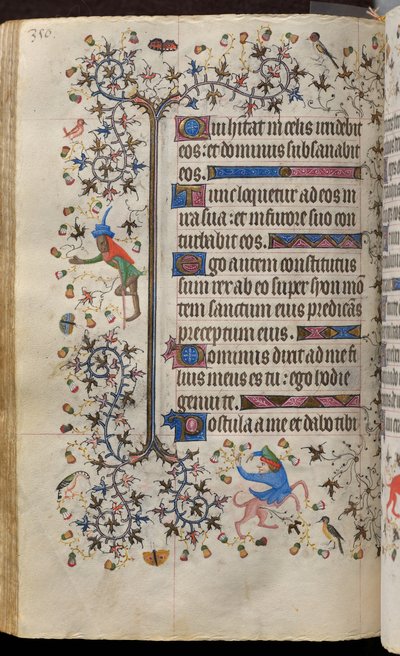 Qui hitat in celis irridebit
eos: et dominus subsanabit
eos.
Tunc loquetur ad eos in
ira sua: et in furore suo con
turbabit eos.
Ego autem constitutus
sum rex ab eo super syon mō
tem sanctum eius predicās
preceptum eius.
Dominus dixit ad me fi
lius meus es tu: ego hodie
genui te.
Postula a me et dabo tibi